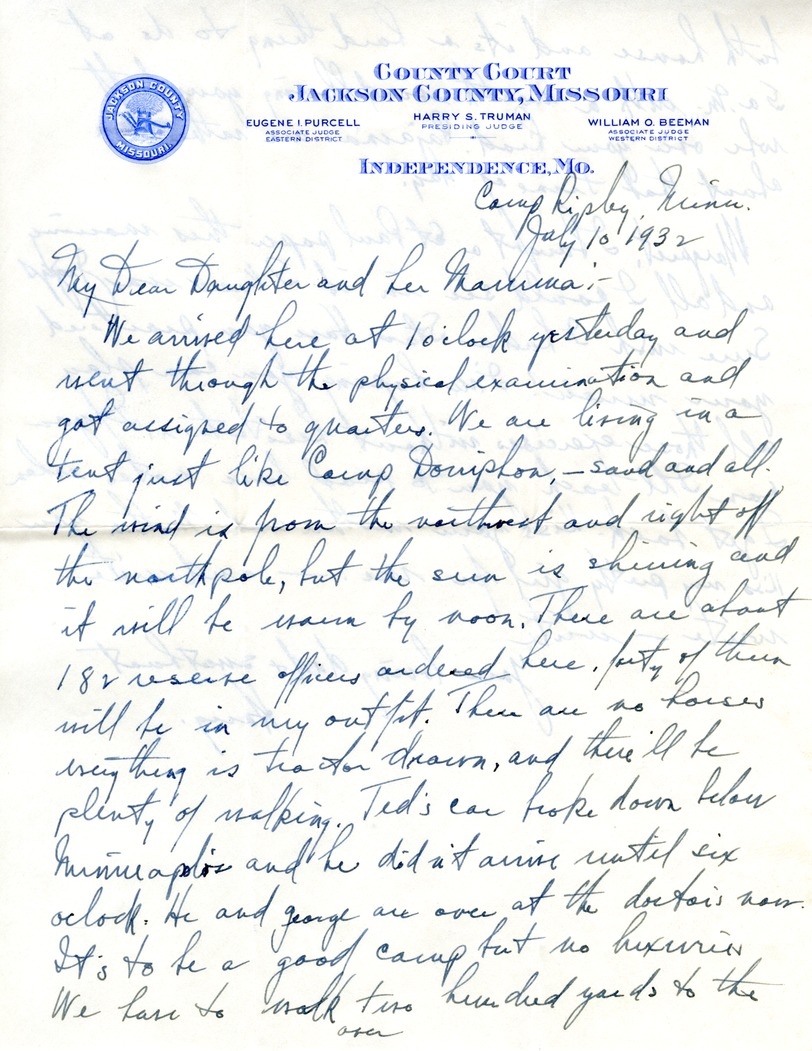 COUNTY COURT
JACKSON COUNTY, MISSOURI
JACKSON COUNTY
MISSOURI
EUGENE I. PURCELL
ASSOCIATE JUDGE
EASTERN DISTRICT
HARRY S. TRUMAN
PRESIDING JUDGE
WILLIAM O. BEEMAN
ASSOCIATE JUDGE
WESTERN DISTRICT
INDEPENDENCE, MO.
Camp Ripley, Minn.
July 10 1932
My Dear Daughter and her Mamma:-
We arrived here at 1 o'clock yesterday and
went through the physical examination and
got assigned to quarters. We are living in a
tent just like Camp Doniphan, - sand and all.
The wind is from the northwest and right off
the northpole, but the sun is shining and
it will be warm by noon. There are about
182 reserve officers ordered here, forty of them
will be in my outfit. There are no horses
everything is tractor drawn, and there'll be
plenty of walking. Ted's car broke down below
Minneapolis and he didn't arrive until six
oclock. He and george are over at the doctors now.
It's to be a good camp but no luxuries
We have to walk two hundred yards to the
over